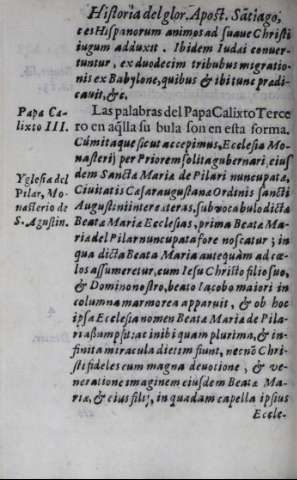 Historia del glor. Apost. Sātiago,
tes Hispanorum animos ad suaue Christi
iugum adduxit. Ibidem Iudai conuer-
tuntur, ex duodecim tribubus migratio-
nis ex Babylone, quibus & ibi tunc pradi-
cauit, &c.
Papa Ca-
lixto III.
Las palabras del Papa Calixto Terce
ro en aq̄lla su bula son en esta forma.
Cūm itaque sicut accepimus, Ecclesia Mo-
nasterij per Priorem solita gubernari, eius
dem Sancta Maria de Pilari nuncupata,
Yglesia del
Pilar, Mo-
nasterio de
S. Agustin.
Ciuitatis Casaraugustana Ordinis sancti
Augustini inter cateras, sub vocabulo dicta
Beata Maria Ecclesias, prima Beata Ma-
ria del Pilar nuncupata fore noscatur; in
qua dicta Beata Maria antequàm ad cœ-
los assumeretur, cum Iesu Christo filio suo,
& Domino nostro, beato Iacobo maiori in
columna marmorea apparuit, & ob hoc
ipsa Ecclesia nomen Beata Maria de Pila-
ri assumpsit: ac inibi quam plurima, & in-
finita miracula dietim fiunt, necnō Chri-
sti fideles cum magna deuotione, & ve-
neratione imaginem eiusdem Beata Ma-
ria, & eius filij, in quadam capella ipsius
Eccle-